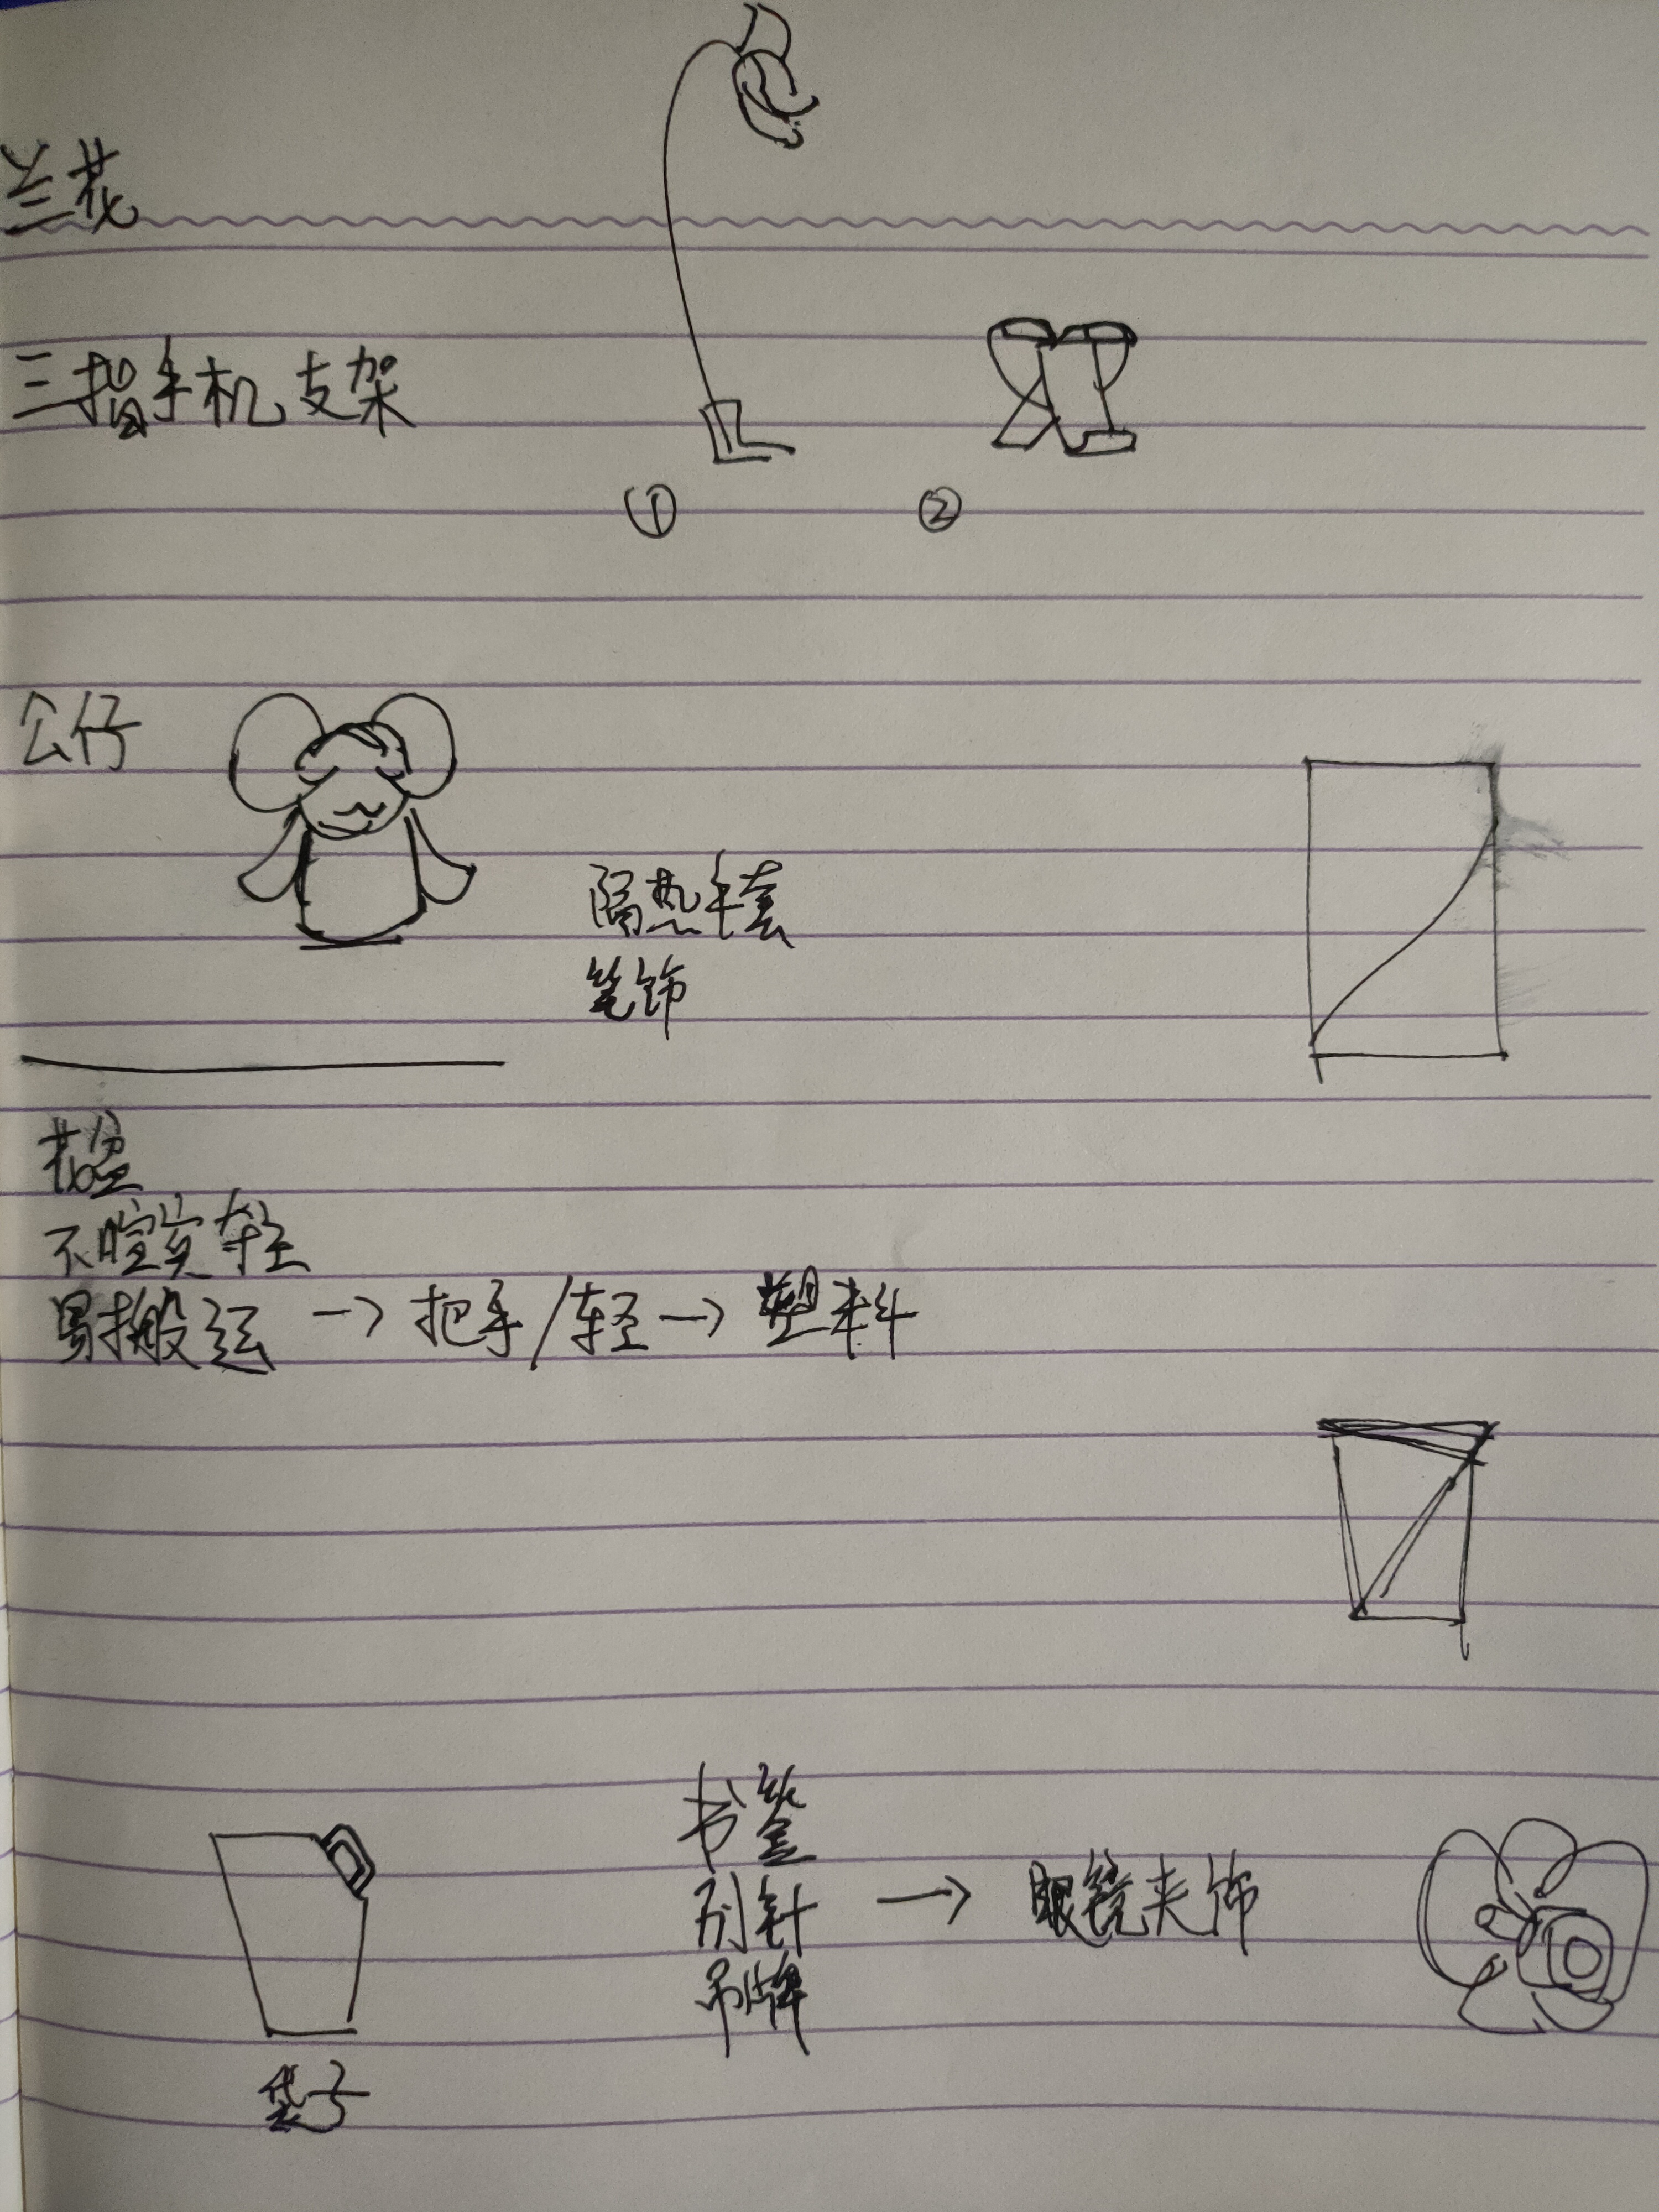 兰花
三摺手机支架
① ②
公仔
隔热手套
笔饰
花盆
不喧宾夺主
易搬运 → 把手/轻 → 塑料
书签
别针 → 眼镜夹饰
吊牌
袋子